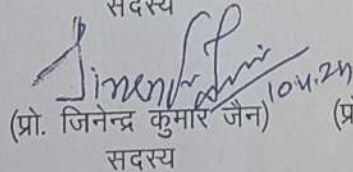 सदस्य
10.4.24
(प्रो. जिनेन्द्र कुमार जैन) (प्रो
सदस्य